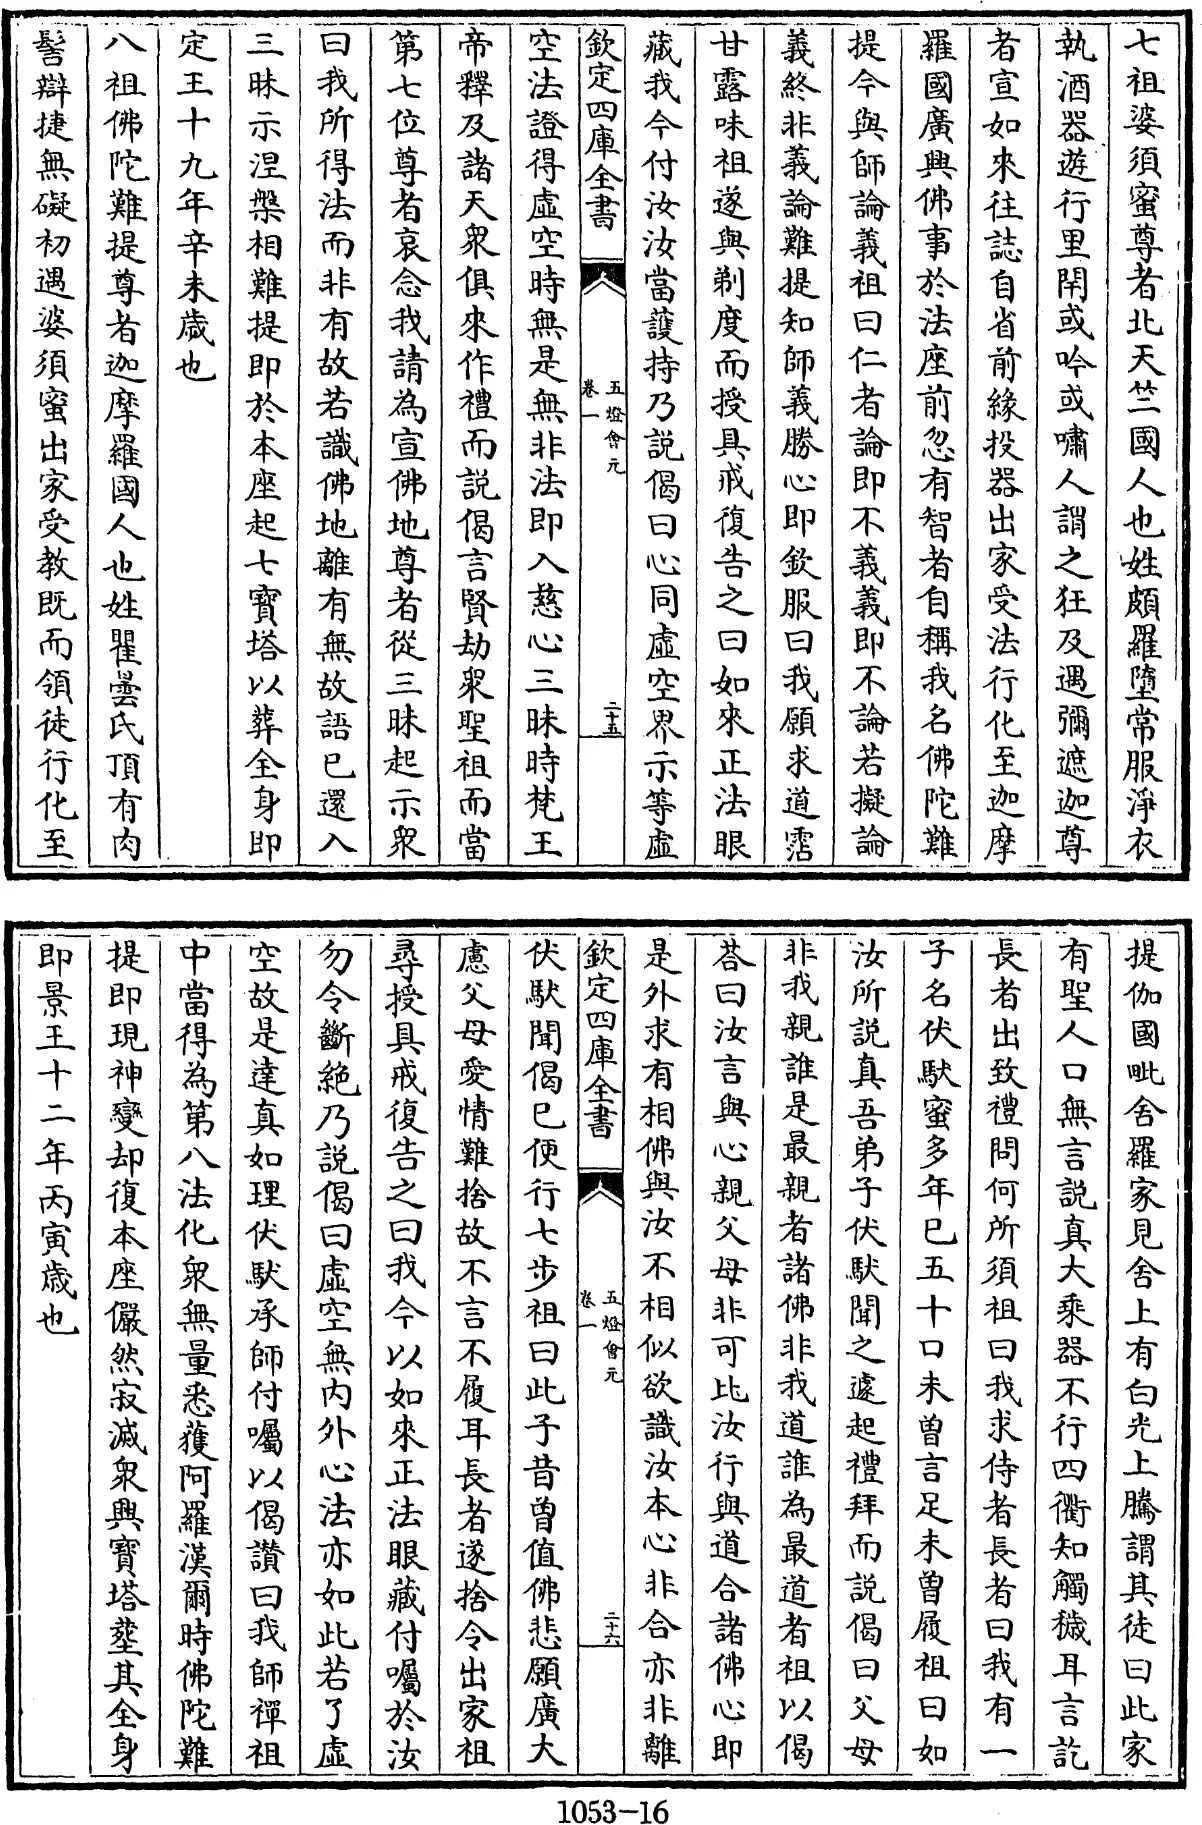 七祖婆須蜜尊者北天竺國人也姓頗羅墮常服淨衣
執酒器遊行里閈或吟或嘯人謂之狂及遇彌遮迦尊
者宣如來往誌自省前緣投器出家受法行化至迦摩
羅國廣興佛事於法座前忽有智者自稱我名佛陀難
提今與師論義祖曰仁者論即不義義即不論若擬論
義終非義論難提知師義勝心即欽服曰我願求道霑
甘露味祖遂與剃度而授具戒復告之曰如來正法眼
藏我今付汝汝當護持乃説偈曰心同虛空界示等虛
欽定四庫全書
五燈會元
卷一
二十五
空法證得虛空時無是無非法即入慈心三昧時梵王
帝釋及諸天衆俱來作禮而説偈言賢劫衆聖祖而當
第七位尊者哀念我請為宣佛地尊者從三昧起示衆
曰我所得法而非有故若識佛地離有無故語已還入
三昧示涅槃相難提即於本座起七寶塔以葬全身即
定王十九年辛未歲也
八祖佛陀難提尊者迦摩羅國人也姓瞿曇氏頂有肉
髻辯捷無礙初遇婆須蜜出家受教既而領徒行化至
提伽國毗舍羅家見舍上有白光上騰謂其徒曰此家
有聖人口無言説真大乘器不行四衢知觸穢耳言訖
長者出致禮問何所須祖曰我求侍者長者曰我有一
子名伏馱蜜多年已五十口未曾言足未曾履祖曰如
汝所説真吾弟子伏馱聞之遽起禮拜而説偈曰父母
非我親誰是最親者諸佛非我道誰為最道者祖以偈
荅曰汝言與心親父母非可比汝行與道合諸佛心即
是外求有相佛與汝不相似欲識汝本心非合亦非離
欽定四庫全書
五燈會元
卷一
二十六
伏馱聞偈已便行七步祖曰此子昔曾值佛悲願廣大
慮父母愛情難捨故不言不履耳長者遂捨令出家祖
尋授具戒復告之曰我今以如來正法眼藏付囑於汝
勿令斷絶乃説偈曰虛空無内外心法亦如此若了虛
空故是達真如理伏馱承師付囑以偈讚曰我師禪祖
中當得為第八法化衆無量悉獲阿羅漢爾時佛陀難
提即現神變却復本座儼然寂滅衆興寶塔塟其全身
即景王十二年丙寅歲也
1053-16